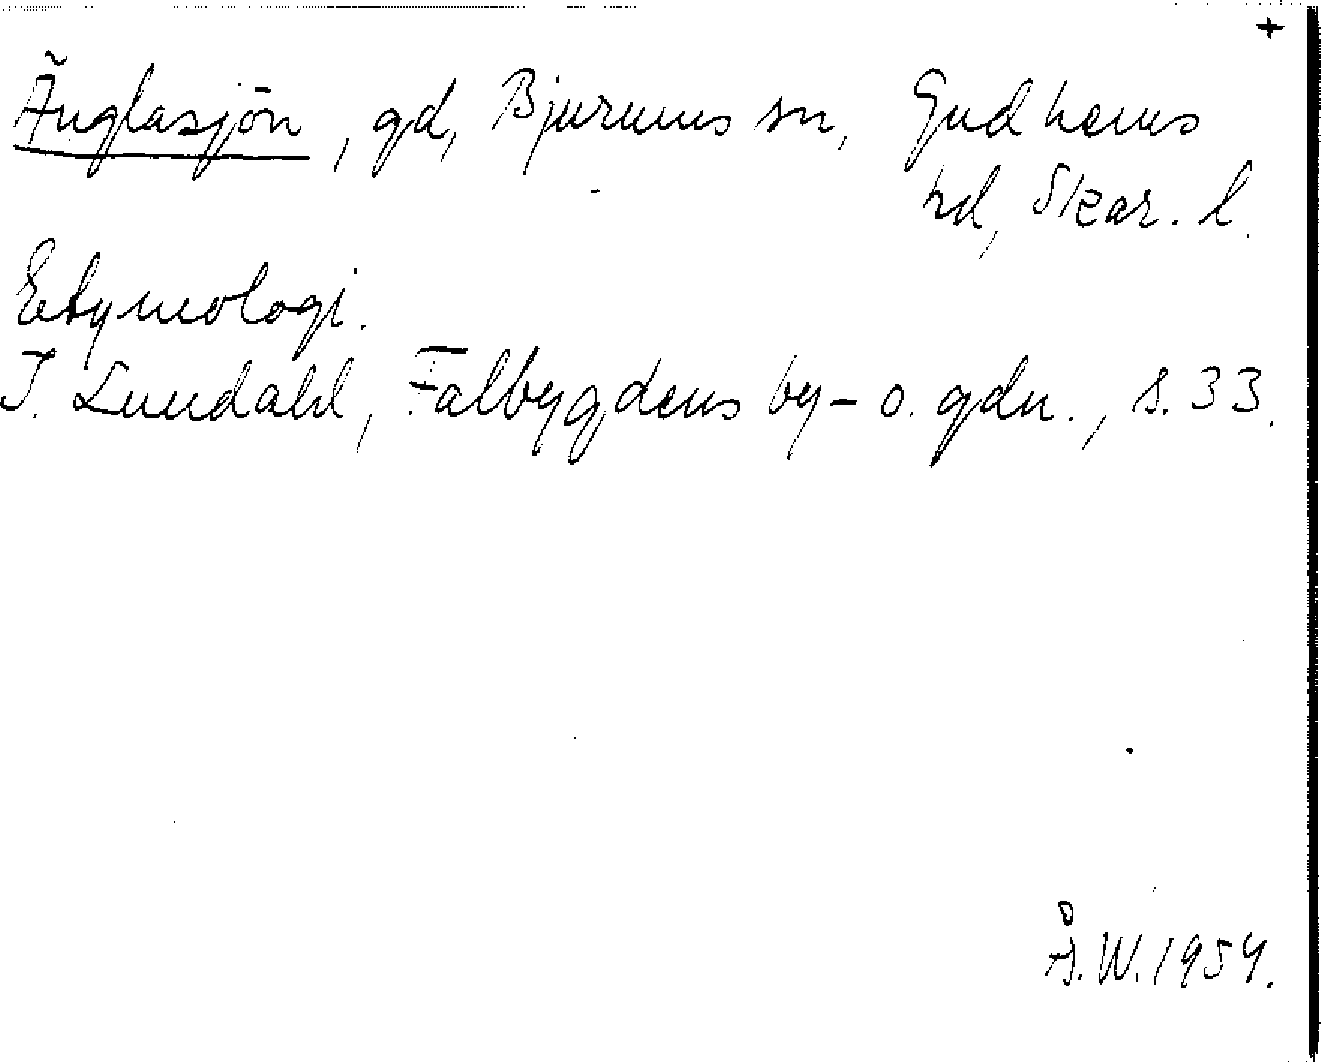 +
Änglasjön, gd, Bjurums sn, Gudhems
hd, Skar. l.
Etymologi.
I. Lundahl, Falbygdens by- o. gdn., s. 33.
Å.W. 1954.